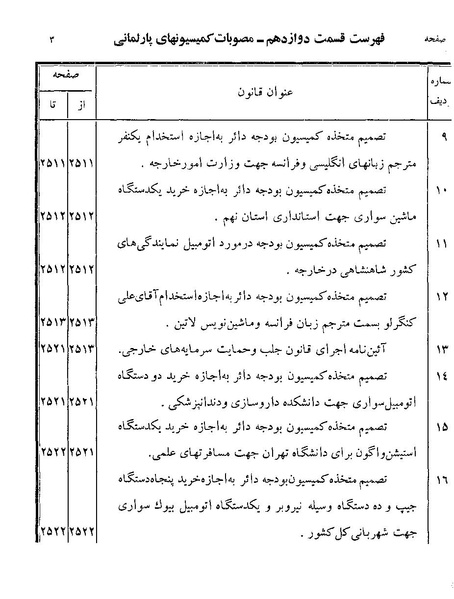 صفحه فهرست قسمت دوازدهم ـ مصوبات کمیسیونهای پارلمانی ۳
شماره ردیف عنوان قانون صفحه
از تا
۹ تصمیم متخذه کمیسیون بودجه دائر به‌اجازه استخدام یکنفر
مترجم زبانهای انگلیسی وفرانسه جهت وزارت امورخارجه . ۲۵۱۱ ۲۵۱۱
۱۰ تصمیم متخذه کمیسیون بودجه دائر به‌اجازه خرید یکدستگاه
ماشین سواری جهت استانداری استان نهم . ۲۵۱۲ ۲۵۱۲
۱۱ تصمیم متخذه کمیسیون بودجه درمورد اتومبیل نمایندگی‌های
کشور شاهنشاهی درخارجه . ۲۵۱۲ ۲۵۱۲
۱۲ تصمیم متخذه کمیسیون بودجه دائر به‌اجازه استخدام آقای‌علی
کنگرلو بسمت مترجم زبان فرانسه وماشین‌نویس لاتین . ۲۵۱۳ ۲۵۱۳
۱۳ آئین‌نامه اجرای قانون جلب وحمایت سرمایه‌های خارجی. ۲۵۱۳ ۲۵۲۱
۱۴ تصمیم متخذه کمیسیون بودجه دائر به‌اجازه خرید دو دستگاه
اتومبیل‌سواری جهت دانشکده داروسازی ودندانپزشکی . ۲۵۲۱ ۲۵۲۱
۱۵ تصمیم متخذه کمیسیون بودجه دائر به‌اجازه خرید یکدستگاه
استیشن‌واگون برای دانشگاه تهران جهت مسافرتهای علمی. ۲۵۲۱ ۲۵۲۲
۱۶ تصمیم متخذه کمیسیون‌بودجه دائر به‌اجازه‌خرید پنجاه‌دستگاه
جیپ و ده دستگاه وسیله نیروبر و یکدستگاه اتومبیل بیوك سواری
جهت شهربانی کل‌کشور . ۲۵۲۲ ۲۵۲۲